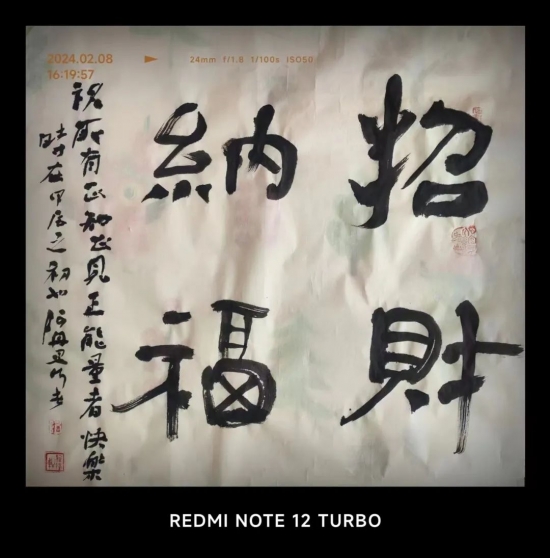 2024.02.08
16:19:57
24mm f/1.8 1/100s ISO50
招財
納福
祝所有正知正見正能量者快樂
時在甲辰之初
REDMI NOTE 12 TURBO